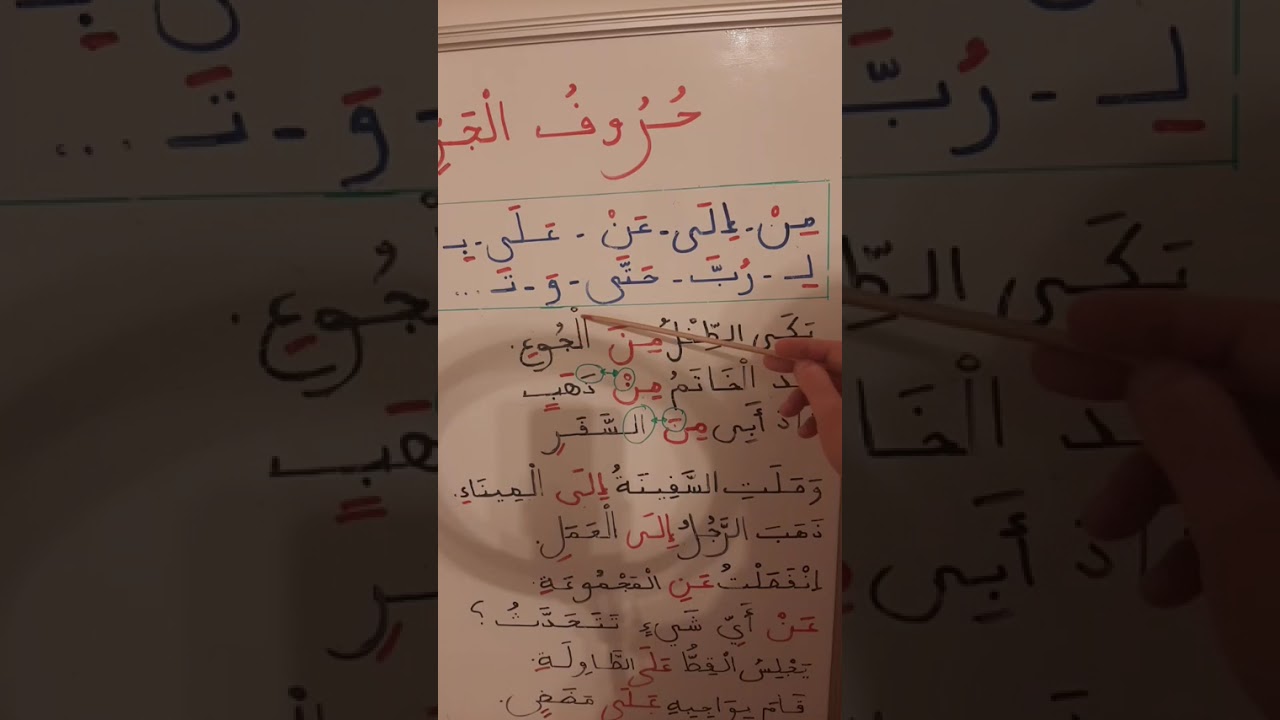 حُرُوفُ الْجَرِّ
مِنْ - إِلَى - عَنْ - عَلَى - بِـ
لِـ - رُبَّ - حَتَّى - وَ - تَـ ...
بَكَى الطِّفْلُ مِنَ الْجُوعِ.
الْخَاتَمُ مِنْ ذَهَبٍ
أَبِي مِنَ السَّفَرِ
وَصَلَتِ السَّفِينَةُ إِلَى الْمِينَاءِ.
ذَهَبَ الرَّجُلُ إِلَى الْعَمَلِ.
اِنْفَصَلْتُ عَنِ الْمَجْمُوعَةِ.
عَنْ أَيِّ شَيْءٍ تَتَحَدَّثُ؟
يَجْلِسُ الْقِطُّ عَلَى الطَّاوِلَةِ.
قَامَ بِوَاجِبِهِ عَلَى مَضَضٍ.